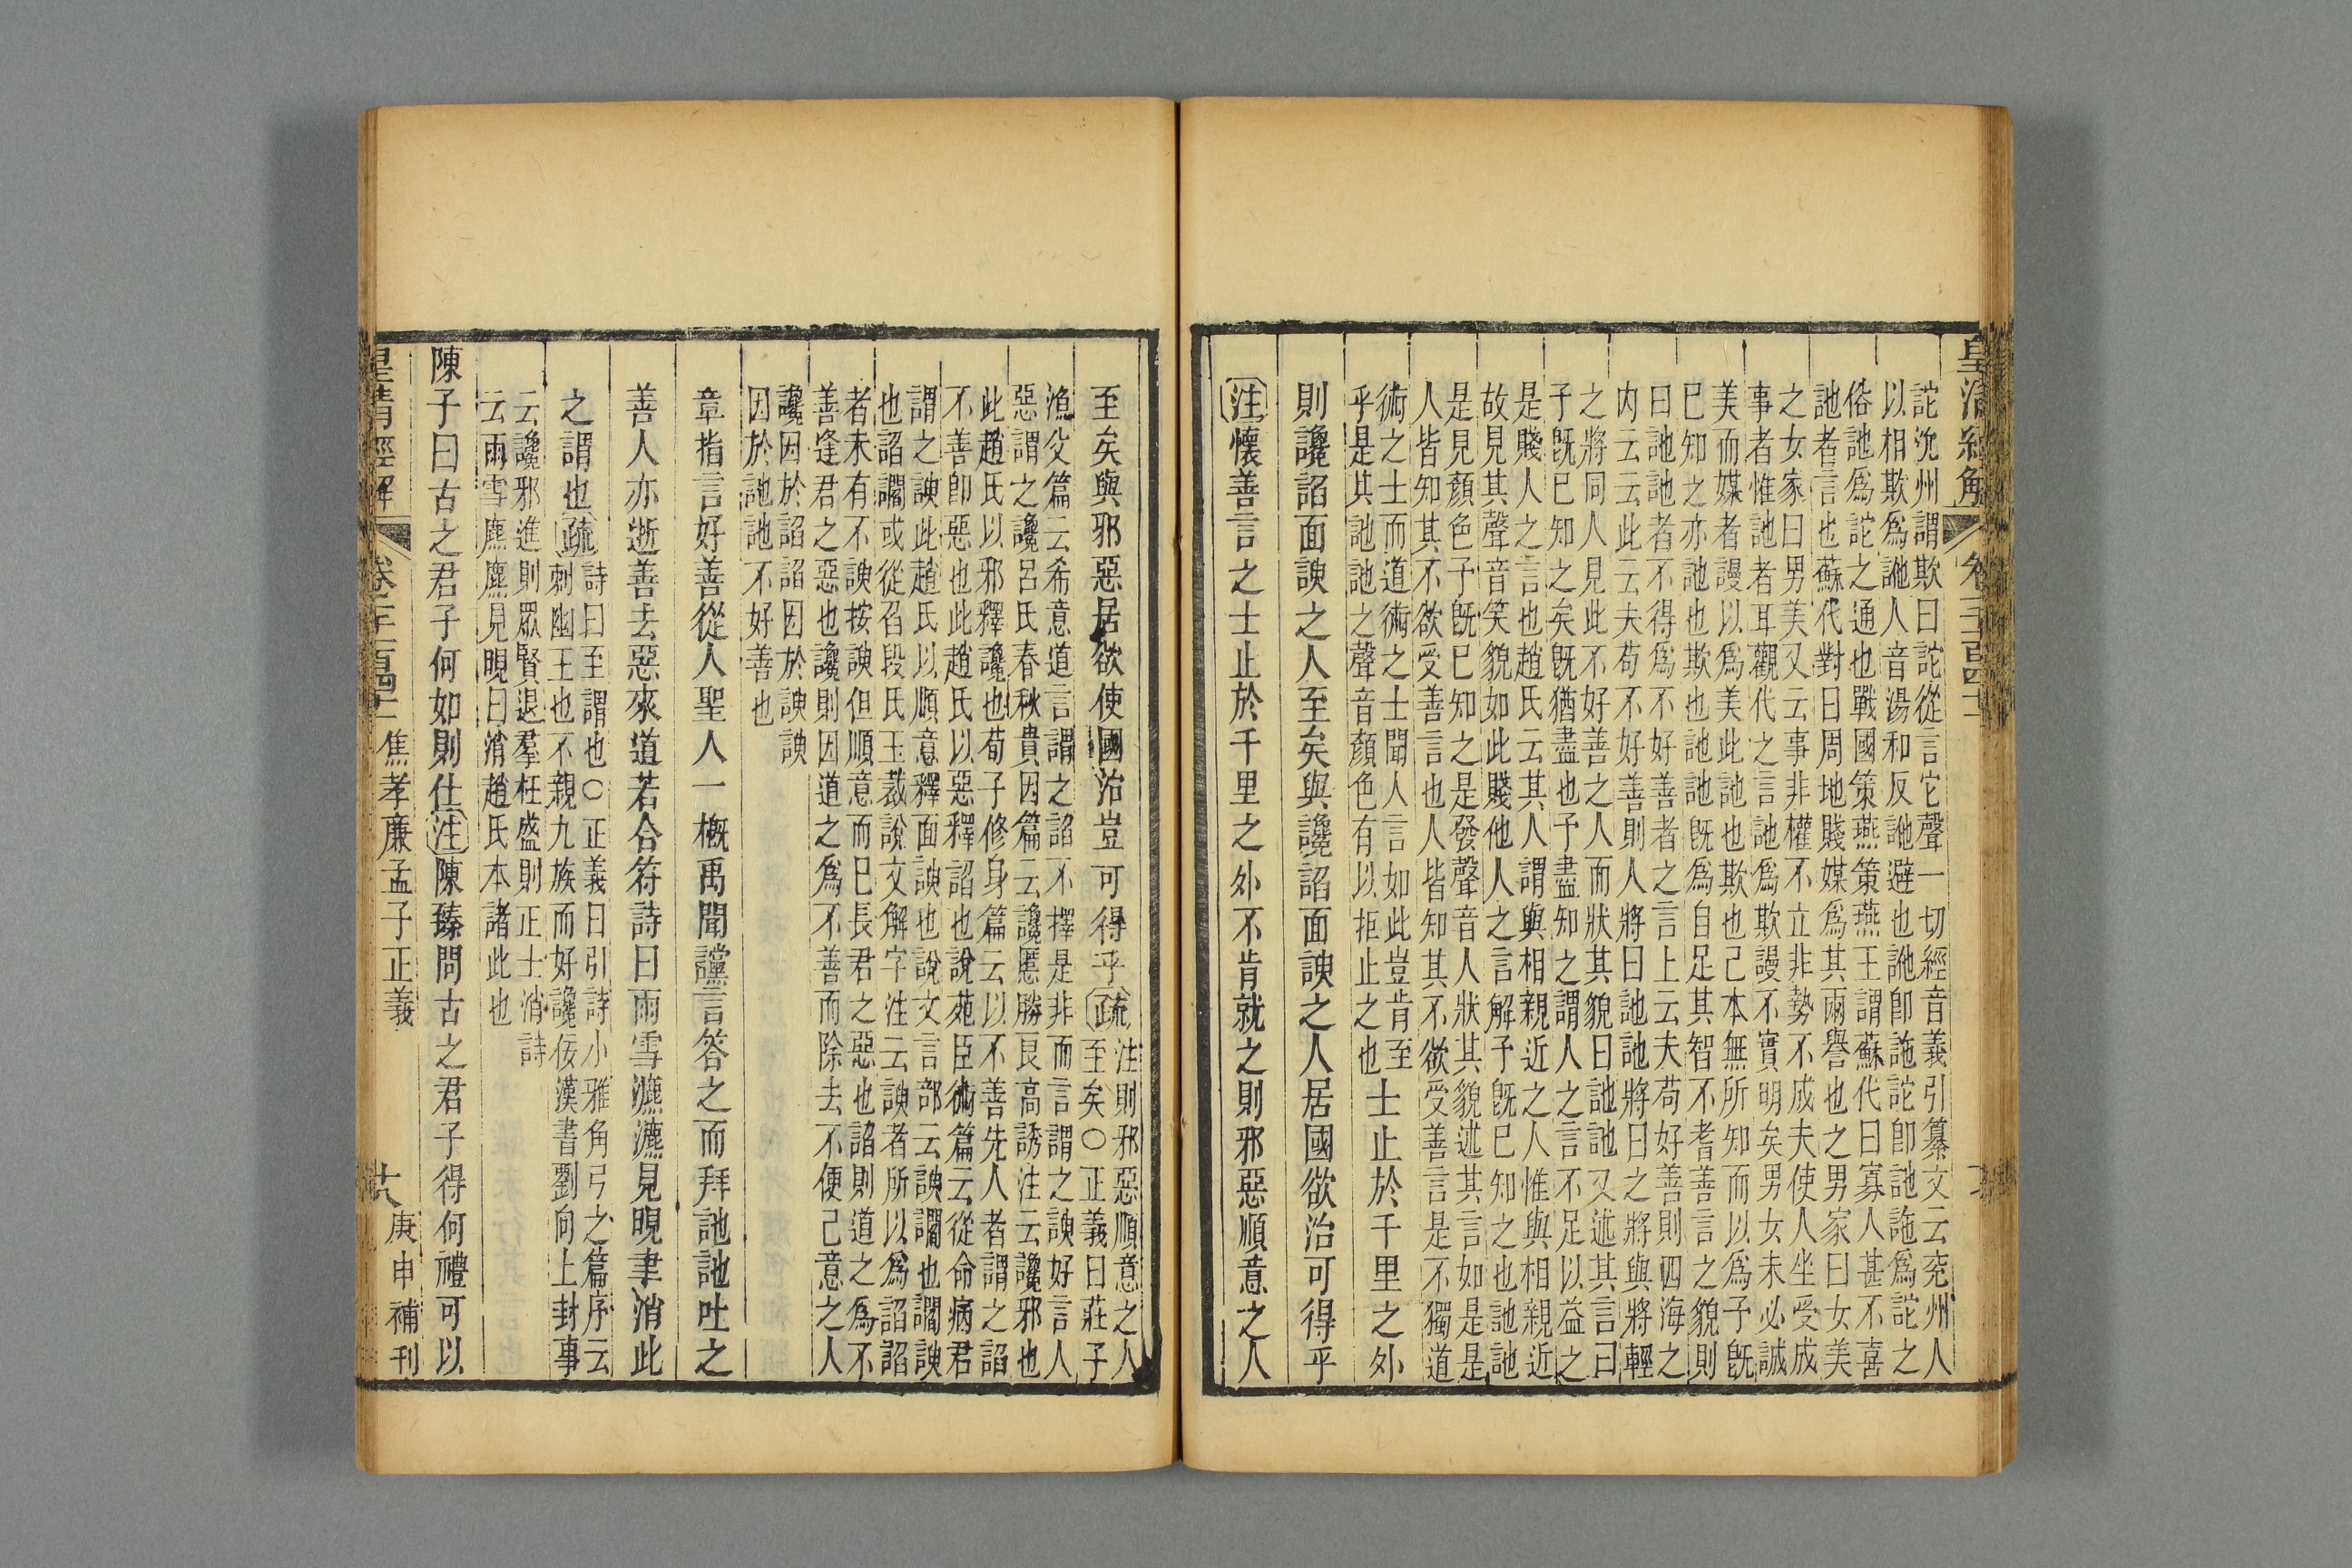 皇清經解
詑沇州謂欺曰詑從言它聲一切經音義引纂文云兖州人
以相欺爲訑人音湯和反訑避也訑卽訑詑卽訑訑爲詑之
俗訑爲詑之通也戰國策燕策燕王謂蘇代曰寡人甚不喜
訑者言也蘇代對曰周地賤媒爲其兩譽也之男家曰女美
之女家曰男美又云事非權不立非勢不成夫使人坐受成
事者惟訑者耳觀代之言訑爲欺謾不實明矣男女未必誠
美而媒者謾以爲美此訑也欺也己本無所知而以爲予旣
已知之亦訑也欺也訑訑旣爲自足其智不耆善言之貌則
曰訑訑者不得爲不好善者之言上云夫苟好善則四海之
内云云此云夫苟不好善則人將曰訑訑將曰之將與將輕
之將同人見此不好善之人而狀其貌曰訑訑又述其言曰
予旣已知之矣旣猶盡也予盡知之謂人之言不足以益之
是賤人之言也趙氏云其人謂與相親近之人惟與相親近
故見其聲音笑貌如此賤他人之言解予旣已知之也訑訑
是見顏色予旣已知之是發聲音人狀其貌述其言如是是
人皆知其不欲受善言也人皆知其不欲受善言是不獨道
術之士而道術之士聞人言如此豈肯至
乎是其訑訑之聲音顏色有以拒止之也
士止於千里之外
則讒諂面諛之人至矣與讒諂面諛之人居國欲治可得乎
注懷善言之士止於千里之外不肯就之則邪惡順意之人
至矣與邪惡居欲使國治豈可得乎疏
注則邪惡順意之人
至矣○正義曰莊子
漁父篇云希意道言謂之諂不擇是非而言謂之諛好言人
惡謂之讒呂氏春秋貴因篇云讒慝勝良高誘注云讒邪也
此趙氏以邪釋讒也荀子修身篇云以不善先人者謂之諂
不善卽惡也此趙氏以惡釋諂也說苑臣術篇云從命病君
謂之諛此趙氏以順意釋面諛也說文言部云諛讇也讇諛
也諂讇或從召段氏玉裁說文解字注云諛者所以爲諂諂
者未有不諛按諛但順意而已長君之惡也諂則道之爲不
善逢君之惡也讒則因道之爲不善而除去不便己意之人
讒因於諂諂因於諛諛
因於訑訑不好善也
章指言好善從人聖人一槪禹聞讜言答之而拜訑訑吐之
善人亦逝善去惡來道若合符詩曰雨雪瀌瀌見晛聿消此
之謂也疏
詩曰至謂也○正義曰引詩小雅角弓之篇序云
刺幽王也不親九族而好讒佞漢書劉向上封事
云讒邪進則眾賢退羣枉盛則正士消詩
云雨雪麃麃見晛曰消趙氏本諸此也
陳子曰古之君子何如則仕注陳臻問古之君子得何禮可以
皇清經解
焦孝廉孟子正義
庚申補刊